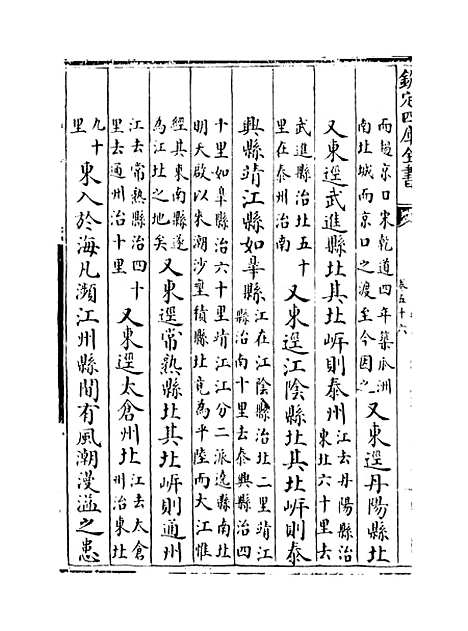 欽定四庫全書
卷五十六
而趨京口宋乾道四年築瓜洲
南址城而京口之渡至今因之
又東逕丹陽縣北
又東逕武進縣北其北岍則泰州
江去丹陽縣治
東北六十里去
武進縣治北五十
里在泰州治南
又東逕江陰縣北其北岍則泰
興縣靖江縣如臯縣
江在江陰縣治北二里靖江
縣治南十里去泰興縣治四
十里如臯縣治六十里靖江江分二派遶縣南北
明天啟以來潮沙壅積縣北竟為平陸而大江惟
經其東南縣遂
為江北之地矣
又東逕常熟縣北其北岍則通州
江去常熟縣治四十
里去通州治十里
又東逕太倉州北
江去太倉
州治東北
九十
里
東入於海凡瀕江州縣間有風潮漫溢之患